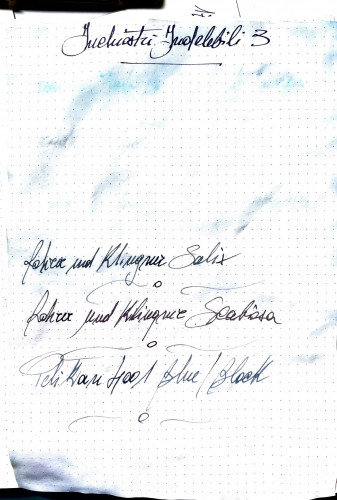 Inchiostri Indelebili 3
Rohrer und Klingner Salix
Rohrer und Klingner Scabiosa
Pelikan 4001 Blue/Black